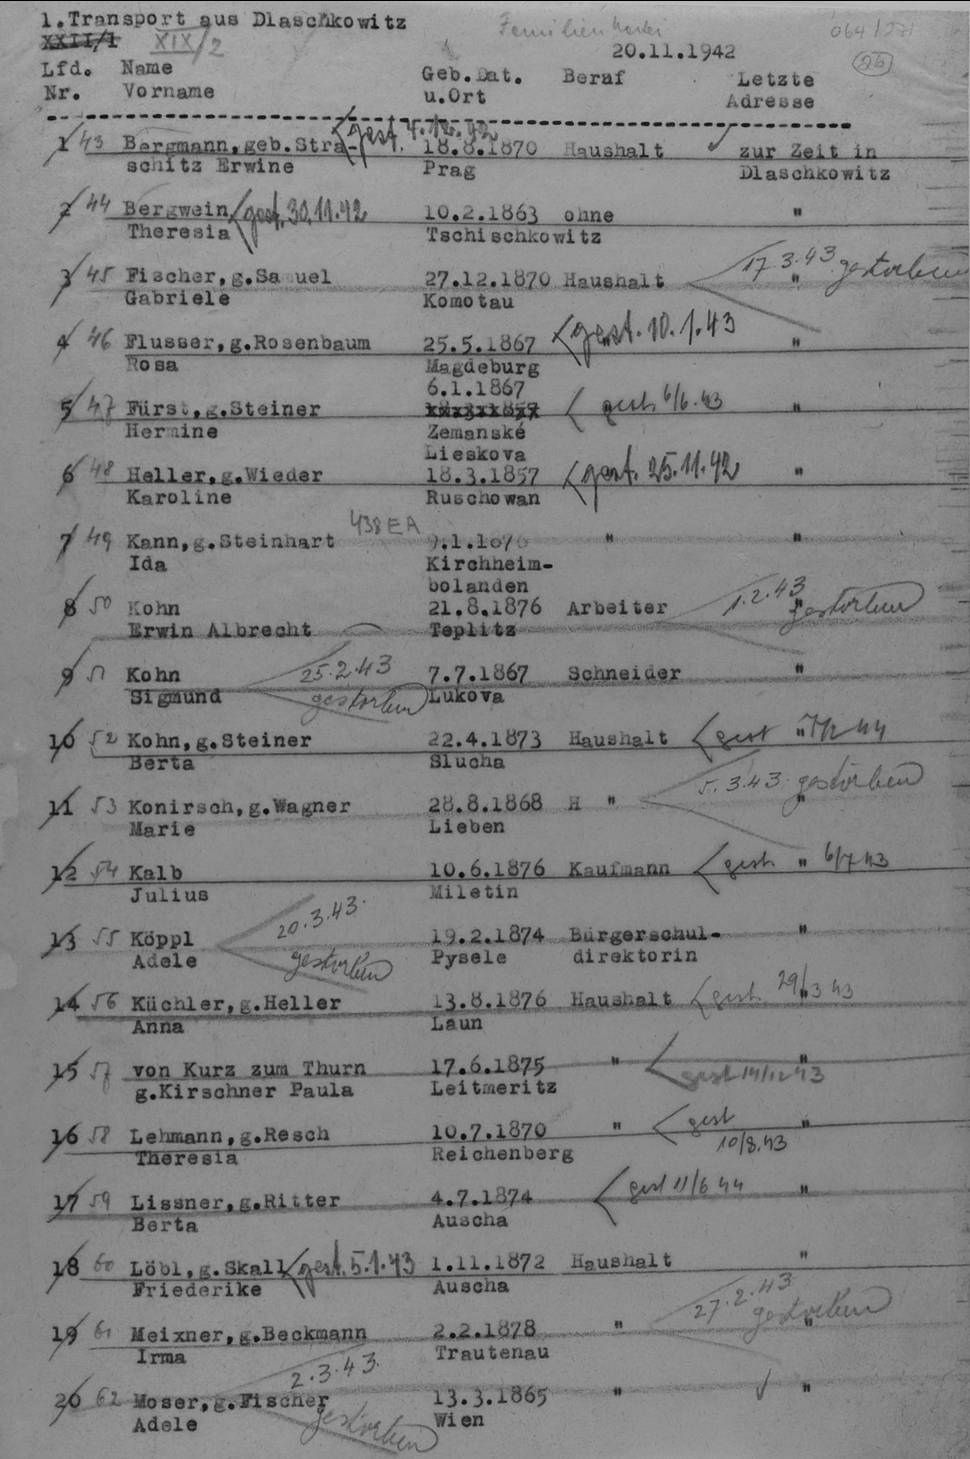 1.Transport aus Dlaschkowitz
XXII/1 XIX/2
20.11.1942
Lfd. Name Geb.Dat. Beraf Letzte
Nr. Vorname u.Ort Adresse
1 43 Bergmann,geb.Stra- gest. 4.12.42 18.8.1870 Haushalt zur Zeit in
schitz Erwine Prag Dlaschkowitz
2 44 Bergwein gest. 30.11.42 10.2.1863 ohne "
Theresia Tschischkowitz
3 45 Fischer,g.Samuel 27.12.1870 Haushalt 17.3.43 gestorben "
Gabriele Komotau
4 46 Flusser,g.Rosenbaum 25.5.1867 gest. 10.1.43 "
Rosa Magdeburg
6.1.1867
5 47 Fürst,g.Steiner gest. 6/6.43 "
Hermine Zemanské
Lieskova
6 48 Heller,g.Wieder 18.3.1857 gest. 25.11.42 "
Karoline Ruschowan
7 49 Kann,g.Steinhart 438EA " "
Ida Kirchheim-
bolanden
8 50 Kohn 21.8.1876 Arbeiter 1.2.43 gestorben "
Erwin Albrecht Teplitz
9 51 Kohn 25.2.43 7.7.1867 Schneider "
Sigmund gestorben Lukova
10 52 Kohn,g.Steiner 22.4.1873 Haushalt gest "
Berta Slucha
11 53 Konirsch,g.Wagner 28.8.1868 H " 5.3.43 gestorben "
Marie Lieben
12 54 Kalb 10.6.1876 Kaufmann gest. " 6/7 43
Julius Miletin
20.3.43.
13 55 Köppl 19.2.1874 Bürgerschul- "
Adele gestorben Pysele direktorin
14 56 Küchler,g.Heller 13.8.1876 Haushalt gest. 29/3 43 "
Anna Laun
15 57 von Kurz zum Thurn 17.6.1875 " "
g.Kirschner Paula Leitmeritz gest 14/12 43
16 58 Lehmann,g.Resch 10.7.1870 " gest "
Theresia Reichenberg 10/8.43
17 59 Lissner,g.Ritter 4.7.1874 gest 11/6 44 "
Berta Auscha
18 60 Löbl,g.Skall gest. 5.1.43 1.11.1872 Haushalt "
Friederike Auscha
19 61 Meixner,g.Beckmann 2.2.1878 " 27.2.43 gestorben "
Irma Trautenau
2.3.43.
20 62 Moser,g.Fischer 13.3.1865 " "
Adele gestorben Wien